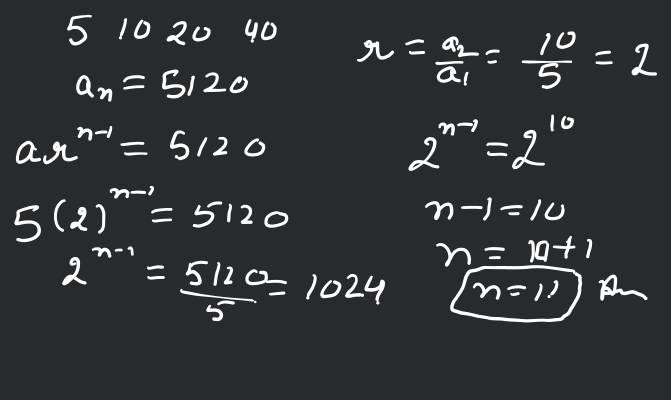 5 10 20 40
a_n = 5120
ar^{n-1} = 5120
5(2)^{n-1} = 5120
2^{n-1} = \frac{5120}{5} = 1024
r = \frac{a_2}{a_1} = \frac{10}{5} = 2
2^{n-1} = 2^{10}
n-1=10
n = 10+1
n=11 Ans